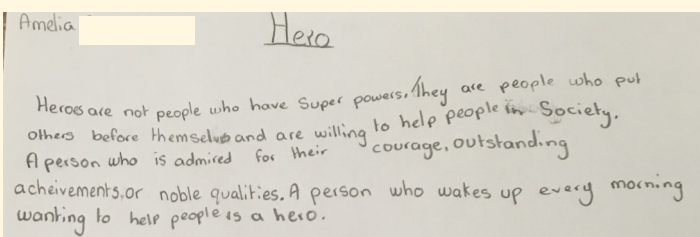 Amelia
Hero
Heroes are not people who have Super powers. They are people who put
others before themselves and are willing to help people in Society.
A person who is admired for their courage, outstanding
acheivements, or noble qualities. A person who wakes up every morning
wanting to help people is a hero.